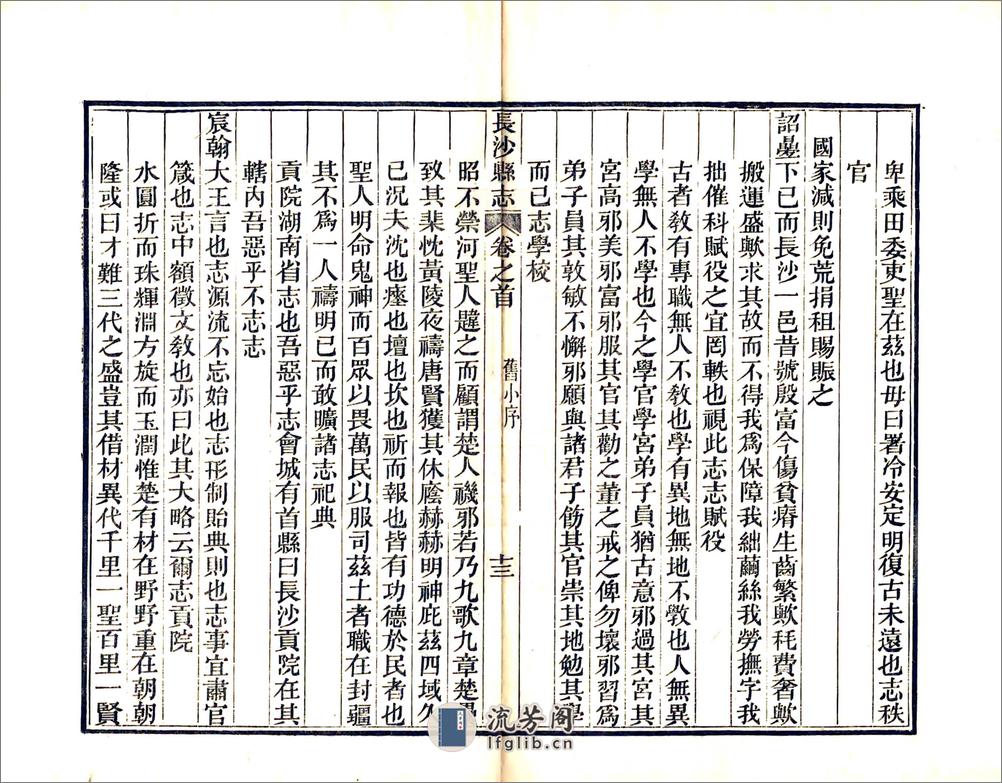 卑乘田委吏聖在茲也毋曰署冷安定明復古未遠也志秩
官
國家減則免荒捐租賜賑之
詔墨下已而長沙一邑昔號殷富今傷貧瘠生齒繁歟秏費奢歟
搬運盛歟求其故而不得我為保障我絀繭絲我勞撫字我
拙催科賦役之宜罔軼也視此志志賦役
古者教有專職無人不教也學有異地無地不教也人無異
學無人不學也今之學官學宮弟子員猶古意邪過其宮其
宮高邪美邪富邪服其官其勸之董之戒之俾勿壞邪習為
弟子員其敦敏不懈邪願與諸君子飭其官崇其地勉其學
而已志學校
長沙縣志 卷之首 舊小序 十三
昭不禜河聖人韙之而顧謂楚人禨邪若乃九歌九章楚
致其棐忱黃陵夜禱唐賢獲其休廕赫赫明神庇茲四域久
已況夫沈也瘞也壇也坎也祈而報也皆有功德於民者也
聖人明命鬼神而百眾以畏萬民以服司茲土者職在封疆
其不為一人禱明已而敢曠諸志祀典
貢院湖南省志也吾惡乎志會城有首縣曰長沙貢院在其
轄內吾惡乎不志志
宸翰大王言也志源流不忘始也志形制貽典則也志事宜肅官
箴也志中額徵文教也亦曰此其大略云爾志貢院
水圓折而珠輝淵方旋而玉潤惟楚有材在野野重在朝朝
隆或曰才難三代之盛豈其借材異代千里一聖百里一賢
流芳阁
lfglib.cn